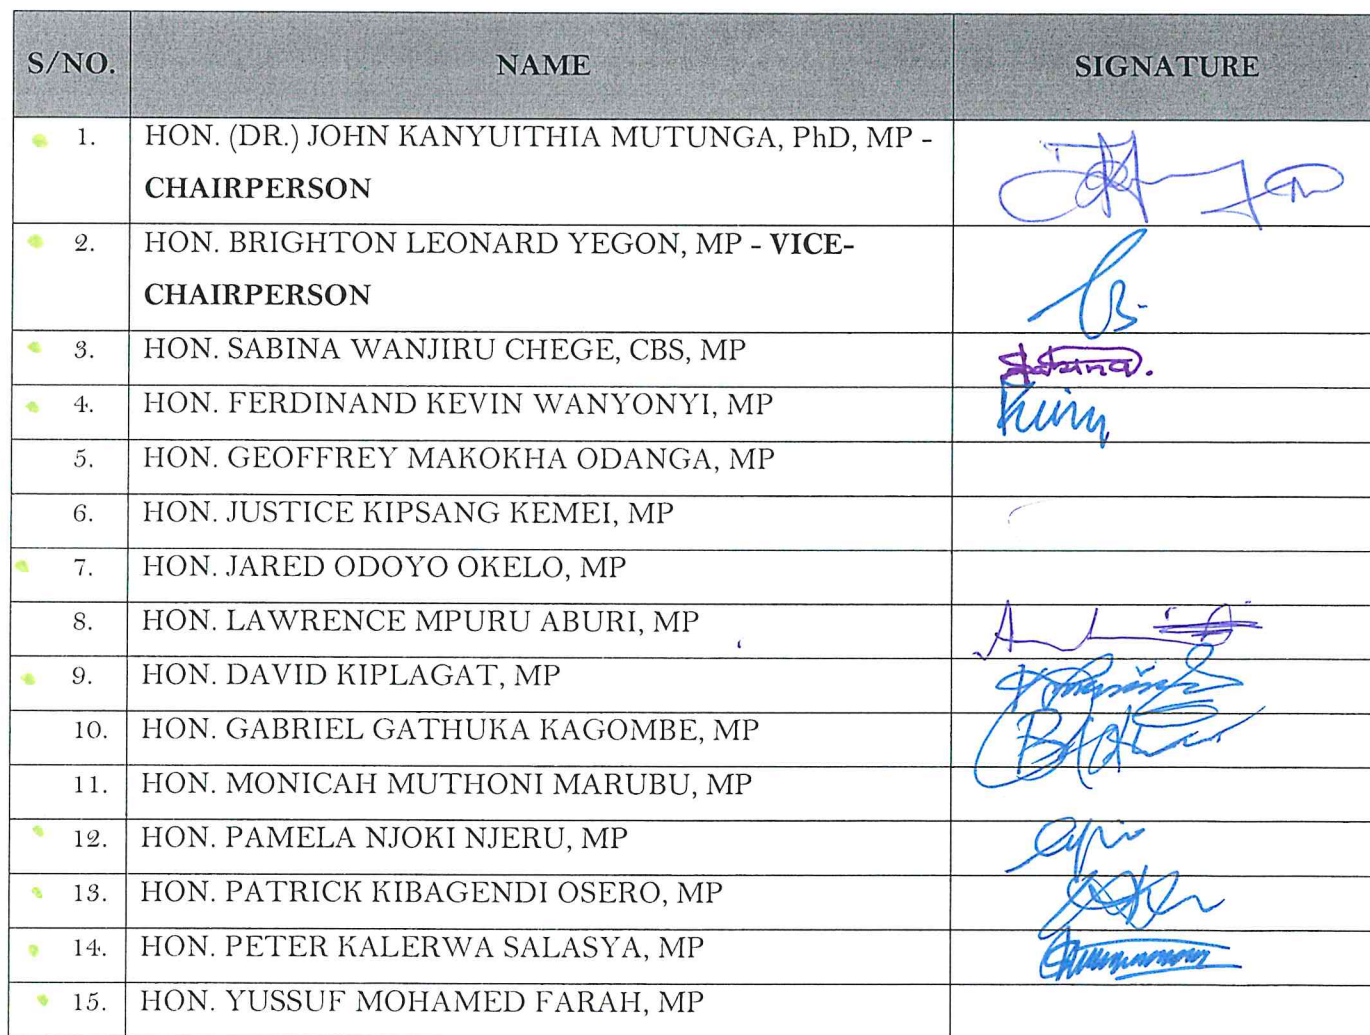 S/NO. NAME SIGNATURE
1. HON. (DR.) JOHN KANYUITHIA MUTUNGA, PhD, MP -
CHAIRPERSON
2. HON. BRIGHTON LEONARD YEGON, MP - VICE-
CHAIRPERSON
3. HON. SABINA WANJIRU CHEGE, CBS, MP Sabina.
4. HON. FERDINAND KEVIN WANYONYI, MP
5. HON. GEOFFREY MAKOKHA ODANGA, MP
6. HON. JUSTICE KIPSANG KEMEI, MP
7. HON. JARED ODOYO OKELO, MP
8. HON. LAWRENCE MPURU ABURI, MP
9. HON. DAVID KIPLAGAT, MP
10. HON. GABRIEL GATHUKA KAGOMBE, MP
11. HON. MONICAH MUTHONI MARUBU, MP
12. HON. PAMELA NJOKI NJERU, MP
13. HON. PATRICK KIBAGENDI OSERO, MP
14. HON. PETER KALERWA SALASYA, MP
15. HON. YUSSUF MOHAMED FARAH, MP